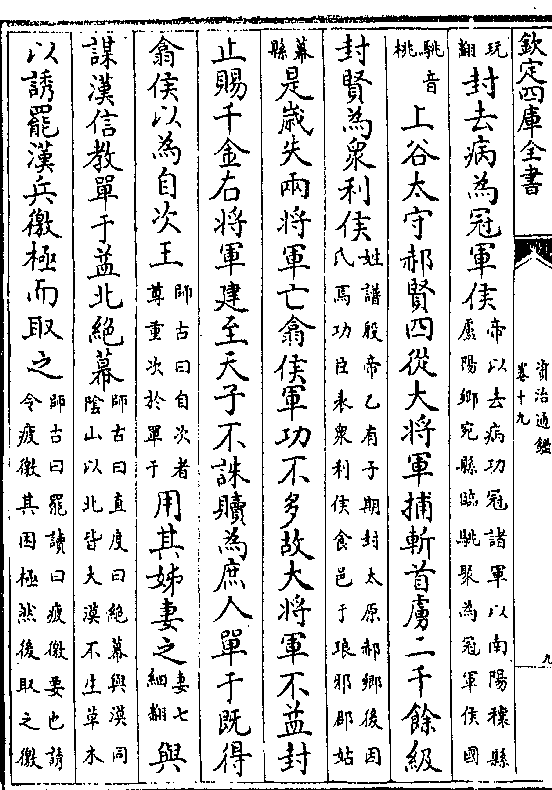 欽定四庫全書
資治通鑑
卷十九
九
玩翻封去病為冠軍侯帝以去病功冠諸軍以南陽穰縣盧陽鄉宛縣臨駣聚為冠軍侯國
駣音桃上谷太守郝賢四從大將軍捕斬首虜二千餘級
封賢為衆利侯姓譜殷帝乙有子期封太原郝鄉後因氏焉功臣表衆利侯食邑于琅邪郡姑
幕縣是歲失兩將軍亡翕侯軍功不多故大將軍不益封
止賜千金右將軍建至天子不誅贖為庶人單于既得
翕侯以為自次王師古曰自次者尊重次於單于用其姊妻之妻七細翻與
謀漢信教單于益北絶幕師古曰直度曰絶幕與漠同陰山以北皆大漠不生草木
以誘罷漢兵徼極而取之師古曰罷讀曰疲徼要也誘令疲徼其困極然後取之徼